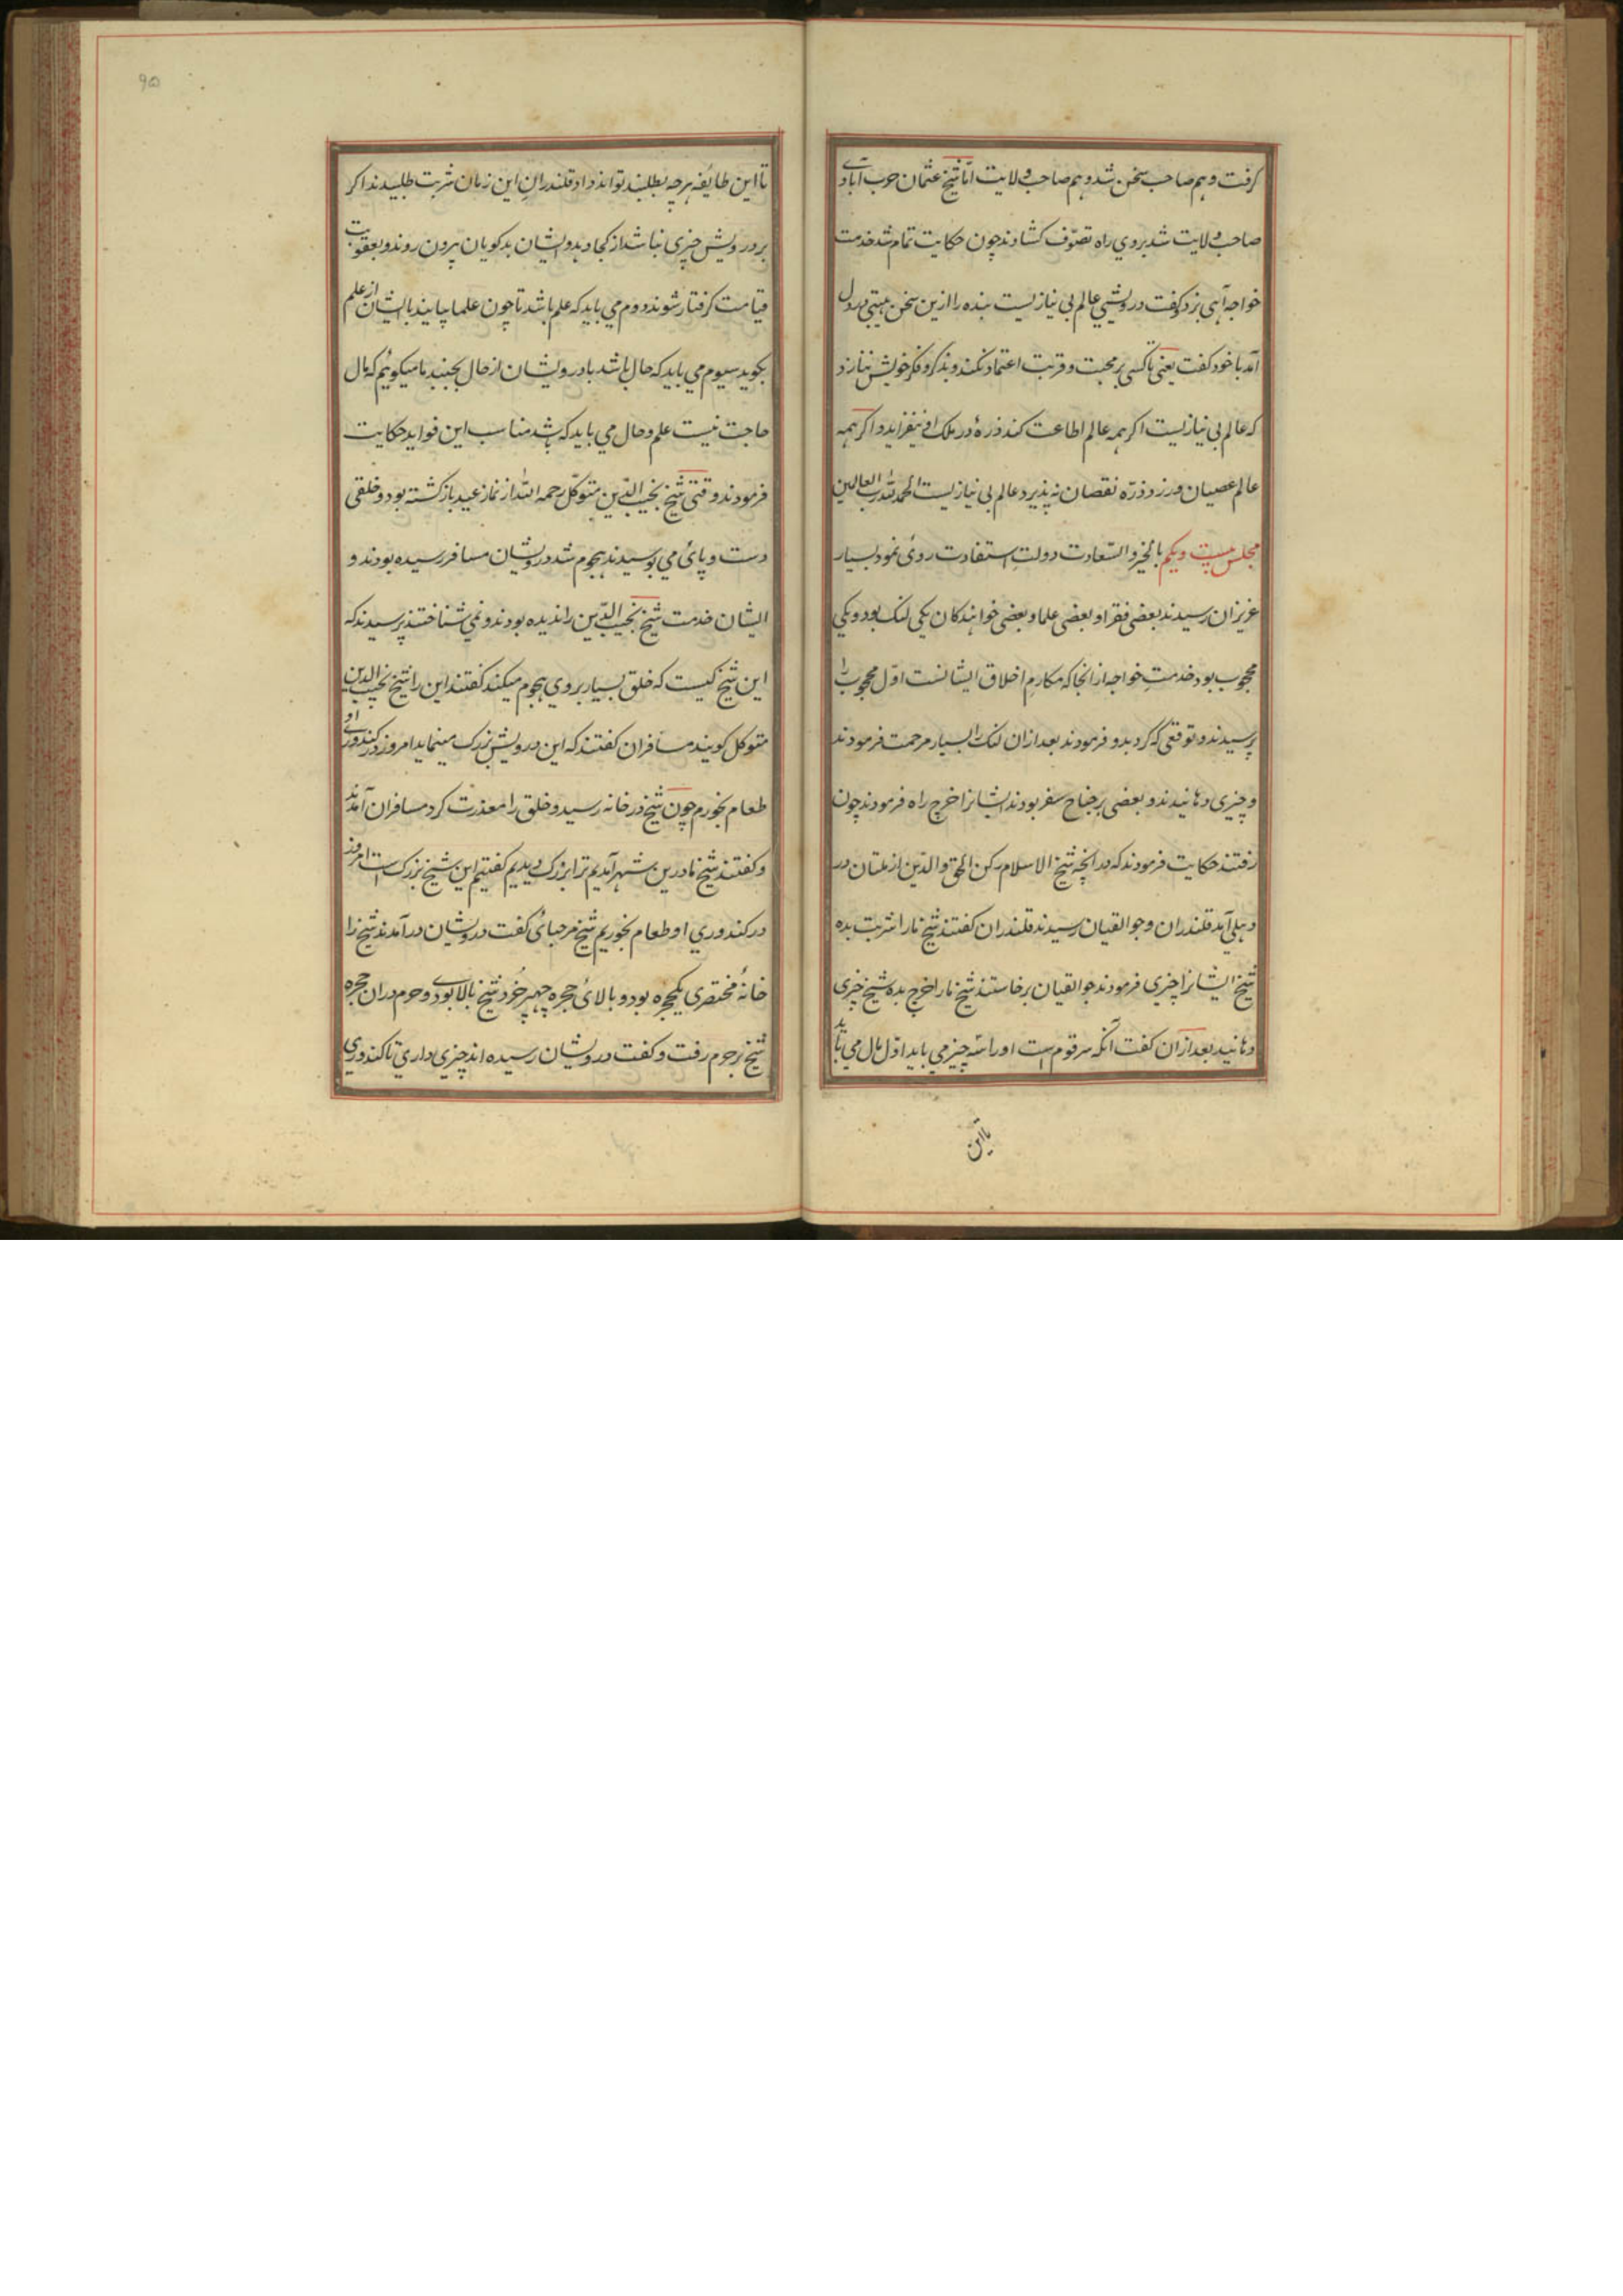 کرفت و هم صاحب سخن شد و هم صاحب ولایت اما شیخ عثمان حرب آبادی
صاحب ولایت شد بروی راه تصوّف کشادند چون حکایت تمام شد خدمت
خواجه آهی بزد و کفت درویشی عالم بی نیازیست بنده را ازین سخن هیبتی در دل
آمد با خود کفت یعنی تا کسی بر محبت و قربت اعتماد نکند و بذکر و فکر خویش ننازد
که عالم بی نیازیست اکر همه عالم اطاعت کند ذرهٔ در ملک او نیفزاید و اکر همه
عالم عصیان ورزد ذرّه نقصان نپذیرد عالم بی نیازیست الحمد لله رب العالمین
مجلس بیست و یکم بالخیر و السّعادت دولتِ استفادت روئ نمود بسیار
عزیزان رسیدند بعضی فقرا و بعضی علما و بعضی خوانندکان یکی لنک بود و یکی
محجوب بود خدمتِ خواجه از انجا که مکارمِ اخلاق ایشانست اوّل محجوب را
پرسیدند و توقعی که کرد بدو فرمودند بعد ازان لنک را بسیار مرحمت فرمودند
و چیزی دهانیدند و بعضی بر جناح سفر بودند ایشانرا خرچ راه فرمودند چون
رفتند حکایت فرمودند که در انچه شیخ الاسلام رکن الحق والدّین از ملتان در
دهلی آمد قلندران و جوالقیان رسیدند قلندران کفتند شیخ مارا شربت بده
شیخ ایشانرا چیزی فرمودند جوالقیان برخاستند شیخ مارا خرچ بده شیخ چیزی
دهانید بعد ازان کفت آنکه سر قوم است او را سه چیز می باید اوّل مال می باید
تا این
۹۵
تا این طایفه هر چه بطلبند تواند داد قلندرانِ این زمان شربت طلبیدند اکر
بر درویش چیزی نباشد از کجا دهد و ایشان بد کویان بیرون روند و بعقوبت
قیامت کرفتار شوند دوم می باید که علم باشد تا چون علما بیایند با ایشان از علم
بکوید سیوم می باید که حال باشد با درویشان از حال بجنبد ما میکوئیم که مال
حاجت نیست علم و حال می باید که باشد مناسب این فواید حکایت
فرمودند وقتی شیخ نجیب الدّین متوکّل رحمه الله از نماز عید بازکشته بود و خلقی
دست و پائ می بوسیدند هجوم شد درویشان مسافر رسیده بودند و
ایشان خدمت شیخ نجیب الدّین را ندیده بودند و نمی شناختند پرسیدند که
این شیخ کیست که خلق بسیار بروی هجوم میکند کفتند این را شیخ نجیب الدین
متوکل کویند مسافران کفتند که این درویش بزرک مینماید امروز در کندوری او
طعام بخورم چون شیخ در خانه رسید و خلق را معذرت کرد مسافران آمدند
و کفتند شیخ ما درین شهر آمدیم ترا بزرک دیدیم کفتیم این شیخ بزرک است امروز
در کندوری او طعام بخوریم شیخ مرحبائ کفت درویشان در آمدند شیخ را
خانهٔ مختصری یکحجره بود و بالائ حجره چهپر خُرد شیخ بالا بودی و حرم دران حجره
شیخ بر حرم رفت و کفت درویشان رسیده اند چیزی داری تا کندوری